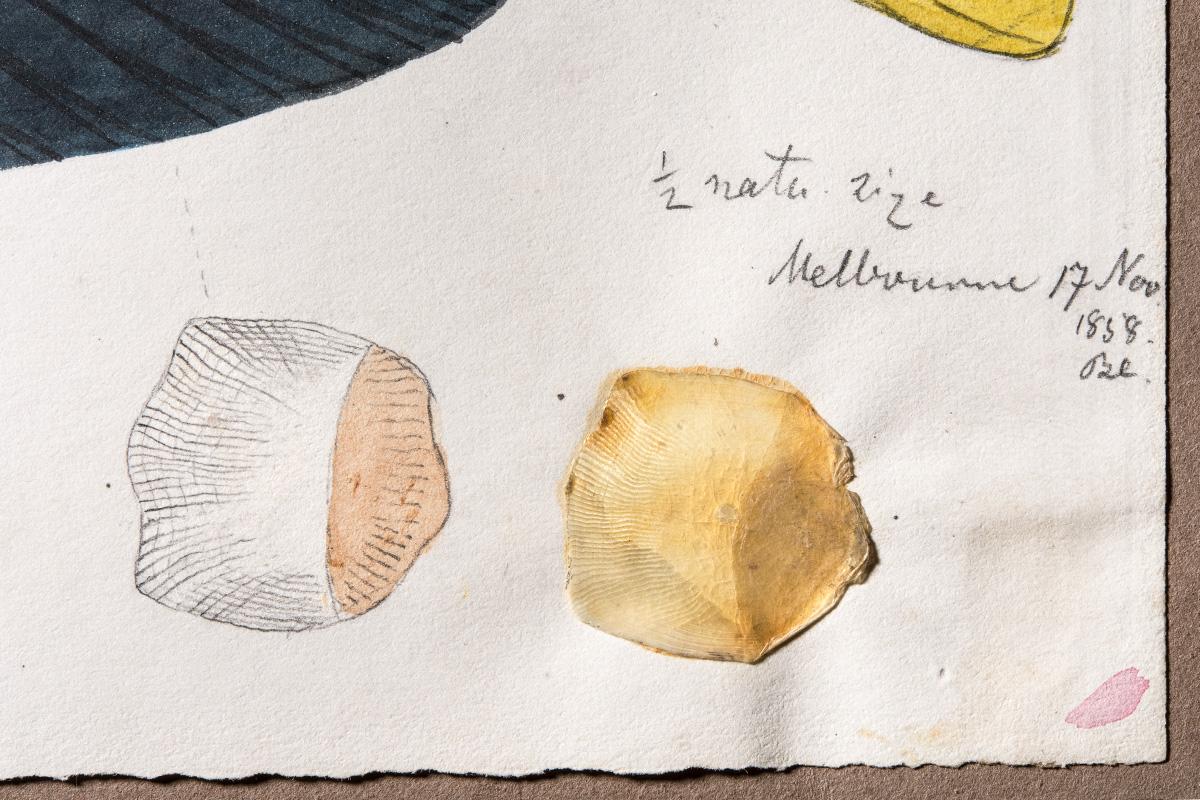 ½ natu. size
Melbourne 17 Nov
1858.
Bl.